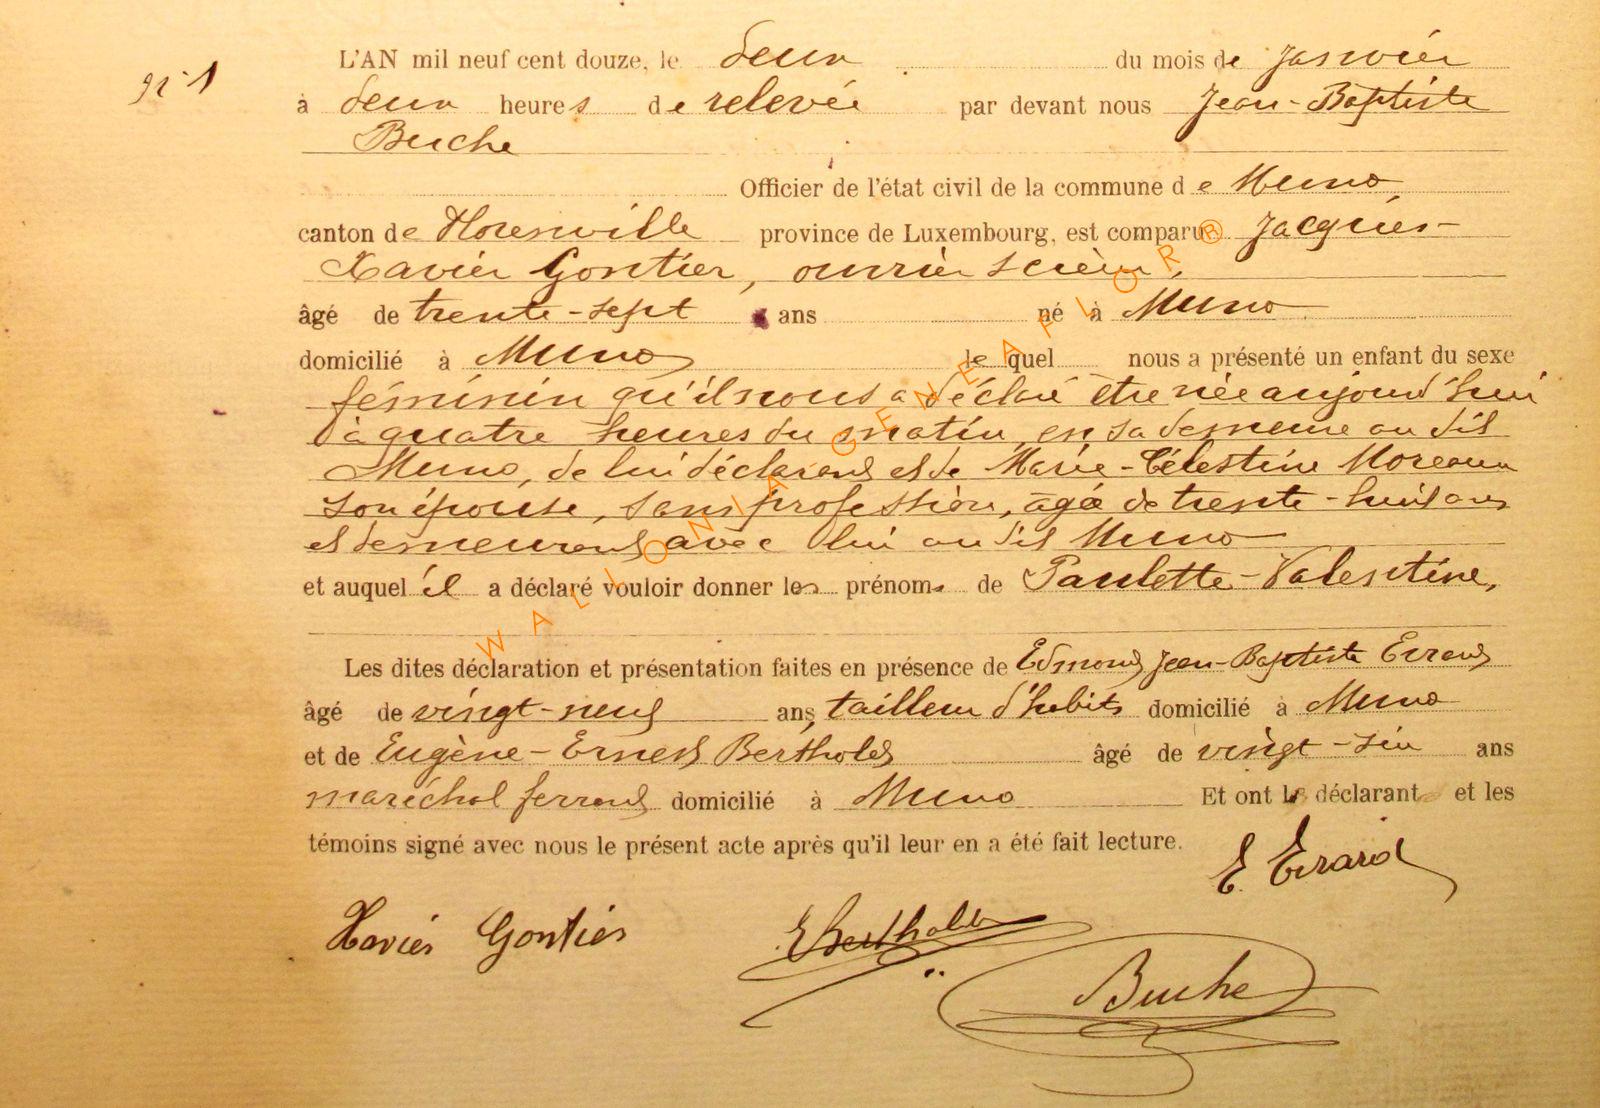 N° 1
L'AN mil neuf cent douze, le deux du mois de Janvier
à deux heures de relevée par devant nous Jean-Baptiste
Buche
Officier de l'état civil de la commune de Muno
canton de Florenville province de Luxembourg, est comparu Jacques-
Xavier Gontier, ouvrier scieur,
âgé de trente-sept ans né à Muno
domicilié à Muno le quel nous a présenté un enfant du sexe
féminin qu'il nous a déclaré être née aujourd'hui
à quatre heures du matin, en sa demeure au dit
Muno, de lui déclarant et de Marie-Célestine Moreaux
son épouse, sans profession, âgée de trente-huit ans
et demeurant avec lui au dit Muno
et auquel il a déclaré vouloir donner les prénoms de Paulette-Valentine,
Les dites déclaration et présentation faites en présence de Edmond Jean-Baptiste Errard
âgé de vingt-neuf ans, tailleur d'habits domicilié à Muno
et de Eugène-Ernest Berthold âgé de vingt-six ans
maréchal ferrant domicilié à Muno Et ont le déclarant et les
témoins signé avec nous le présent acte après qu'il leur en a été fait lecture.
E. Errard
Xavier Gontier
E Berthold
Buche
WALLONIA GENEAFLOR®